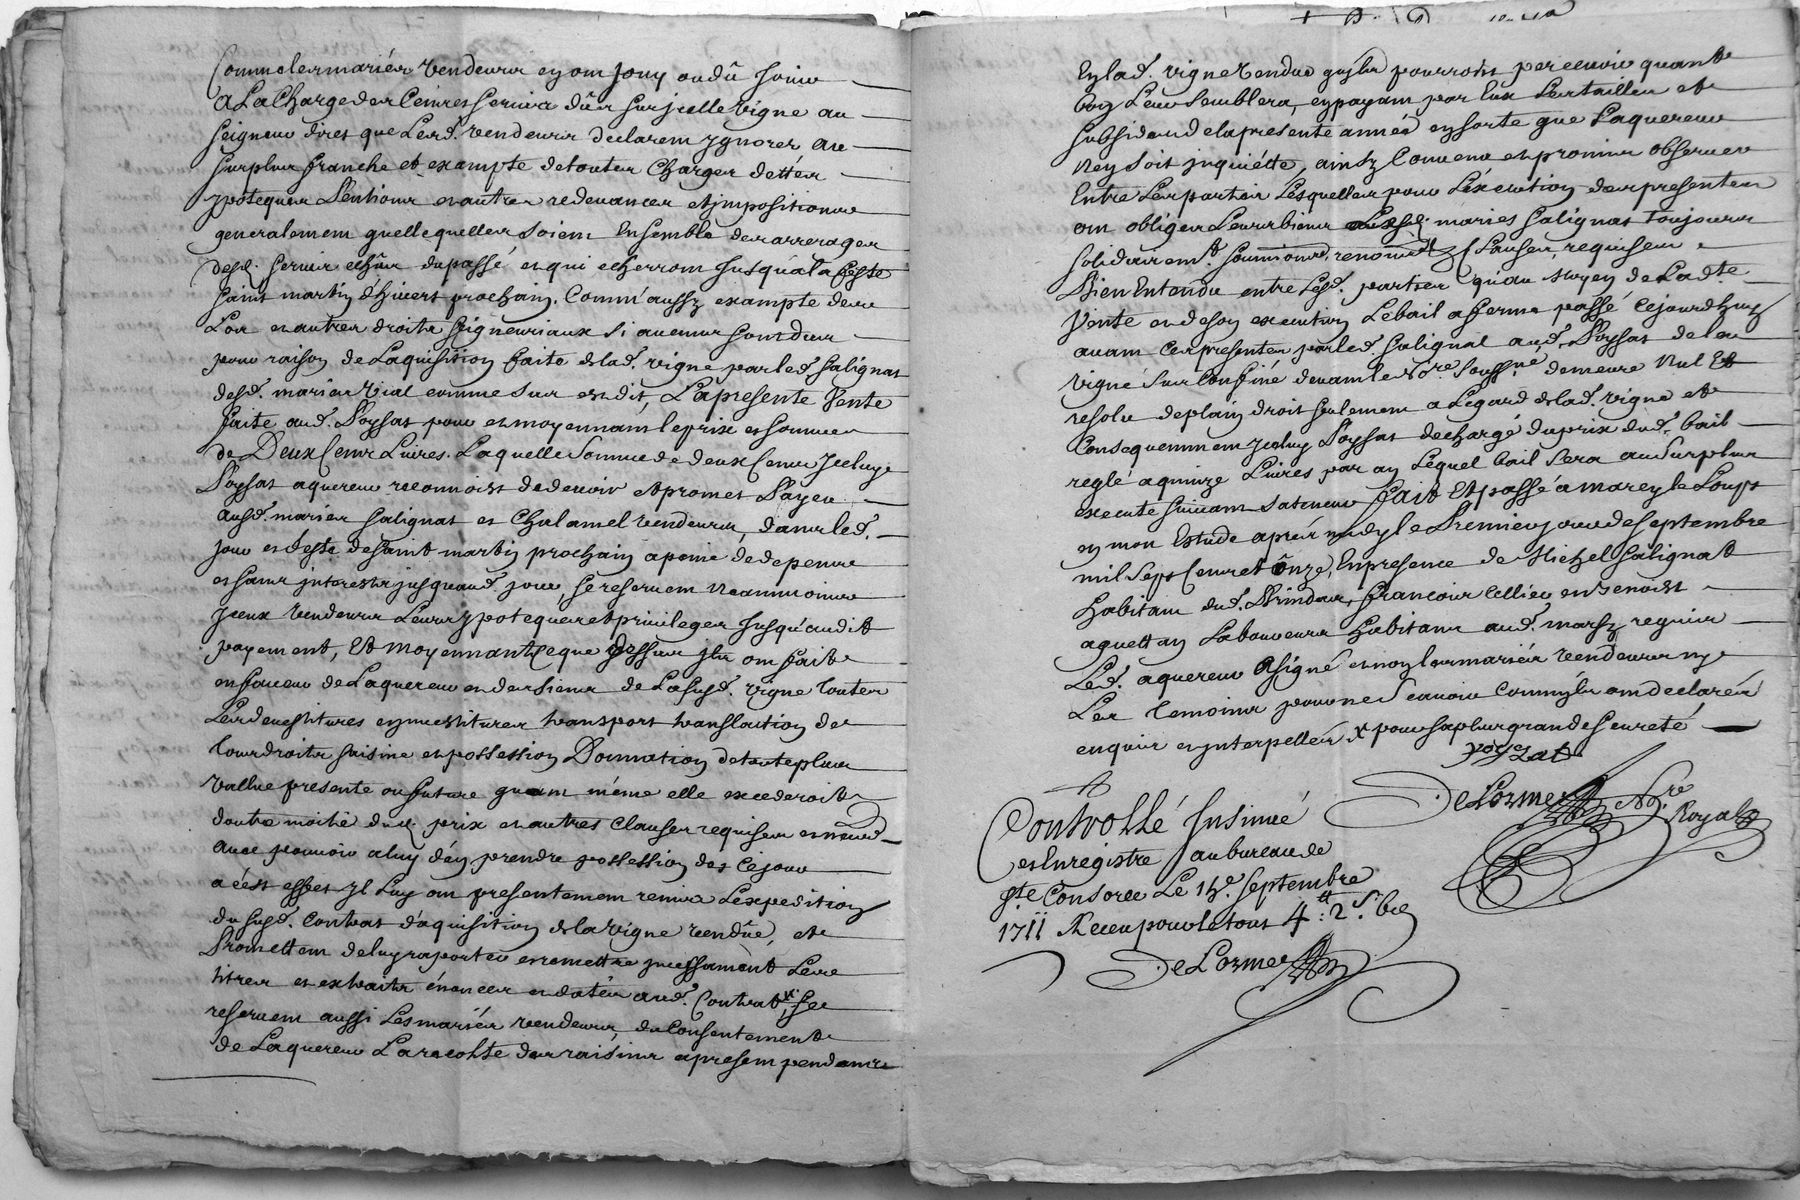 Comme les mariés vendeurs en ont jouy ou dû jouir
a La Charge des Cens et servis dûs sur jcelle vigne au
seigneur direct que Lesd. vendeurs declarent ygnorer au
surplus franche et exampte de toutes Charges dettes
ypoteques Pentions et autres redevances et jmpositions
generalement quelle quelles soient Ensemble des arrerages
desd. servis echûs du passé et qui echerront Jusqu'a la feste
saint martin d'hivert prochain. Comm'aussy exampte des
Los et autres droits seigneuriaux si aucuns sont dus
pour raison de Laquisition faite de lad. vigne par led. Salignat
desd. mariés Vial comme sus est dit, La presente Vente
faite aud. Poyzat pour et moyennant le prix et somme
de Deux Cents Livres. Laquelle somme de deux Cents Jceluy
Poyzat aquereur reconnoist de devoir et promet Payer
ausd. mariés Salignat et Chalamel vendeurs, dans led.
jour et feste de saint martin prochain a peine de depens
et sans jnterests jusquaud. jour, se reservent neanmoins
jceux vendeurs Leurs ypoteques et privileges Jusqu'audit
payement, Et moyennant ce que dessus jls ont fait
en faveur de Laquereur et des siens de La susd. vigne toutes
Les devestitures et jnvestitures transport translation de
tous droits saisine et possession Donnation de toute plus
vallue presente ou future quant méme elle excederoit
d'outre moitié dud. prix et autres Clauses requises et
avec pouvoir a luy d'en prendre possession des ce jour
a c'est effet jl Luy ont presentement remis L'expedition
du susd. Contrat d'aquisition de la vigne vendûe, et
Promettent de luy raporter et remettre jncessament Les
titres et extraits énoncés et datés aud. Contrat, se
reservent aussi Les mariés vendeurs, du Consentement
de Laquereur La recolte des raisins a present pendants
En lad. vigne vendue qu'ils pourront percevoir quant
bon Leur semblera, en payant par Eux Les tailles et
subsides de la presente année en sorte que Laquereur
n'en soit jnquiétté, ainsy Convenu et promis observer
Entre Les parties Lesquelles pour L'éxecution des presentes
ont obligés Leurs biens Lesd. mariés Salignat toujours
solidairemt. soumissions, renontions Clauses, requises
Bien Entendu entre Lesd. parties qu'au moyen de Ladte.
Vente et de son execution Le bail a ferme passé cejourd'huy
avant Ces presentes par led. Salignat aud. Poyzat de la
vigne sus Confiné devant le Nore. soussigné demeure Nul Et
resolu de plain droit seulement a L'egard de lad. vigne et
Consequemment Jceluy Poyzat dechargé du prix dud. bail
reglé a quinze Livres par an Lequel bail sera au surplus
executé suivant sa teneur fait Et passé a marcy le Loup
en mon Estude aprés midy le Premier jour de septembre
mil Sept Cents et ônze, En presence de Michel Salignat
habitant dud. Brindas, francois Cellier et Benoist
aquettan Laboureurs habitans aud. marcy requis
Led. aquereur a signé et non Les mariés vendeurs ny
Les temoins pour ne scavoir Comm'ils ont declarés
enquis et jnterpellés x pour sa plus grande seureté
poyzat
De Lorme Nore. Royal
Controllé Jnsinué
et Enregistré au bureau de
Ste Consorce Le 15e. septembre
1711 Receu pour le tout 4 tt : 2 s.
De Lorme